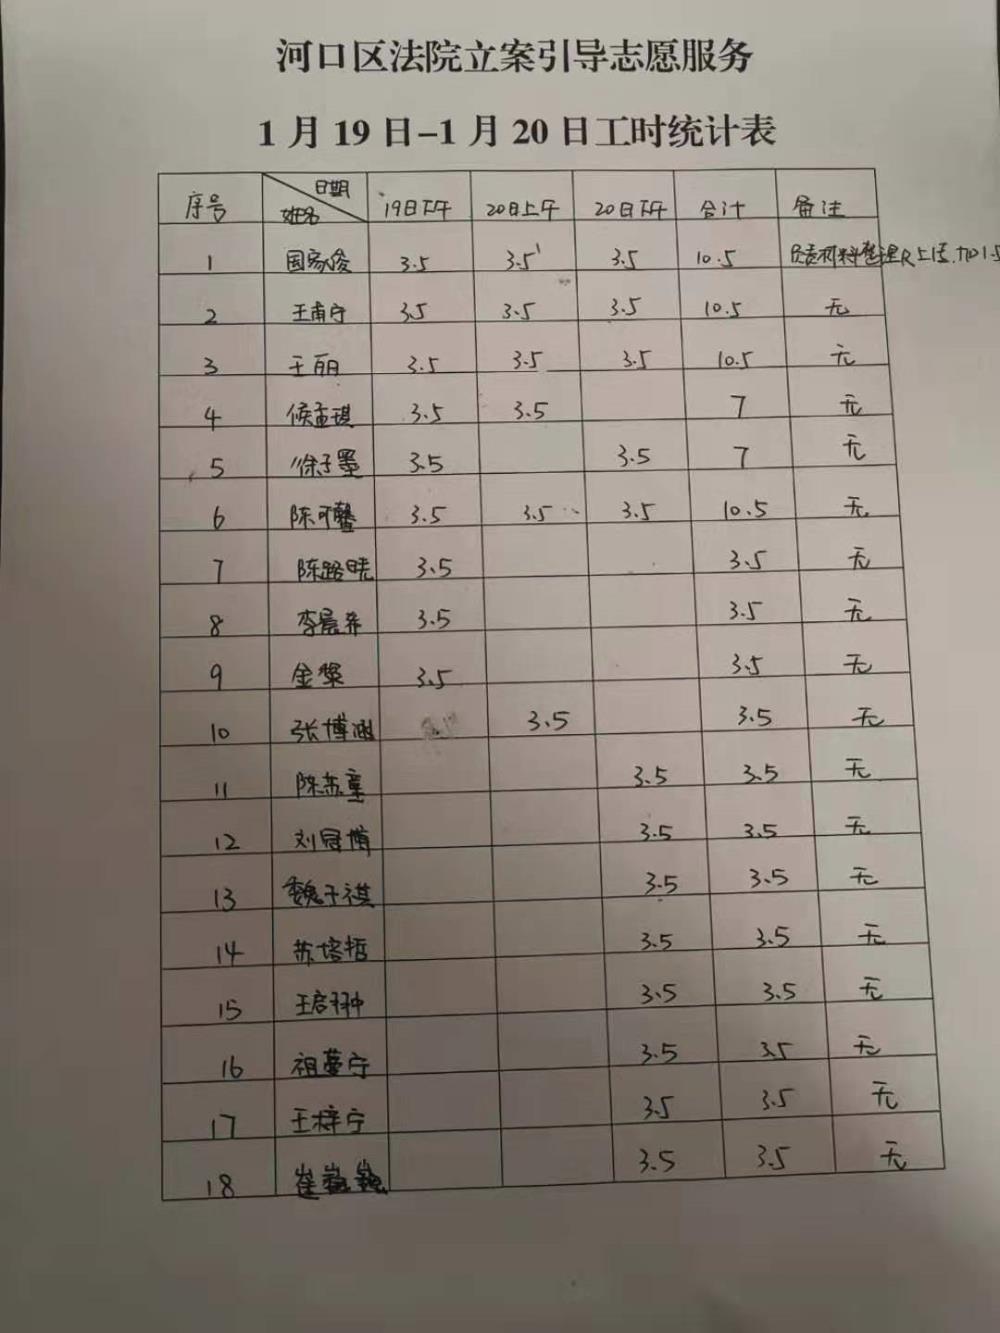 河口区法院立案引导志愿服务
1月19日-1月20日工时统计表
序号 日期 姓名 19日下午 20日上午 20日下午 合计 备注
1 国家俊 3.5 3.5 3.5 10.5 负责材料整理及上传.加1.5
2 王甫宁 3.5 3.5 3.5 10.5 无
3 王丽 3.5 3.5 3.5 10.5 无
4 侯孟琪 3.5 3.5 7 无
5 徐子墨 3.5 3.5 7 无
6 陈可馨 3.5 3.5 3.5 10.5 无
7 陈路晓 3.5 3.5 无
8 李晨希 3.5 3.5 无
9 金粲 3.5 3.5 无
10 张博涵 3.5 3.5 无
11 陈苏童 3.5 3.5 无
12 刘冠博 3.5 3.5 无
13 魏子祺 3.5 3.5 无
14 苏培哲 3.5 3.5 无
15 王启翀 3.5 3.5 无
16 祖蔓宁 3.5 3.5 无
17 王梓宁 3.5 3.5 无
18 崔巍巍 3.5 3.5 无